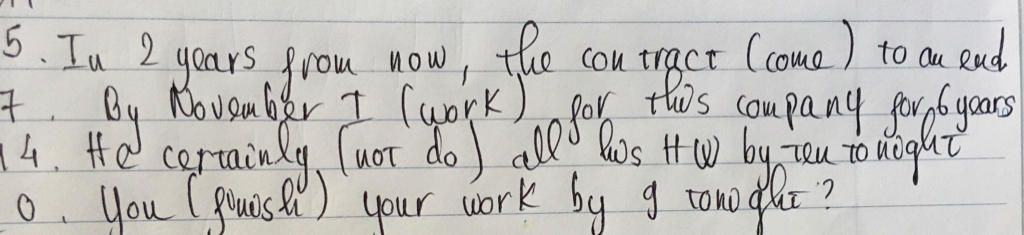 5. In 2 years from now, the contract (come) to an end
7. By November I (work) for this company for 6 years
14. He certainly (not do) all his HW by ten tonight
0. You (finish) your work by 9 tonight?